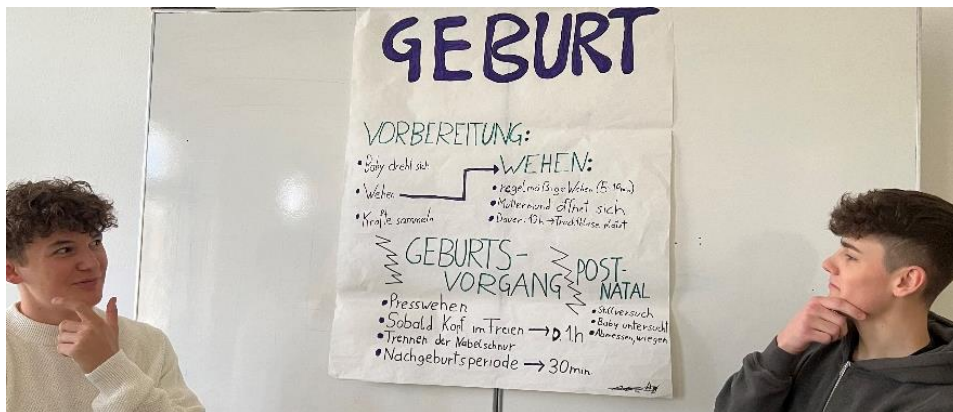 GEBURT
VORBEREITUNG:
• Baby dreht sich
• Wehen
• Kräfte sammeln
WEHEN:
• regelmäßige Wehen (5-10min)
• Muttermund öffnet sich
• Dauer: 10h → Fruchtblase platzt
GEBURTS-
VORGANG
• Presswehen
• Sobald Kopf im Freien → D. 1h
• Trennen der Nabelschnur
• Nachgeburtsperiode → 30min
POST-
NATAL
• Stillversuch
• Baby untersucht
• Abmessen, wiegen